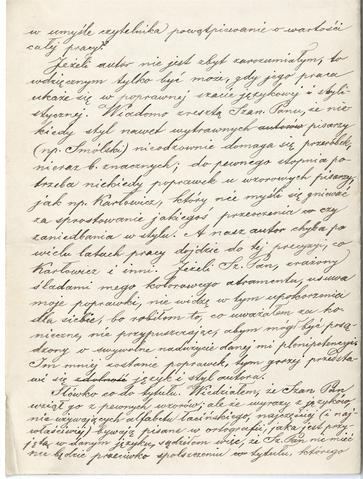 w umyśle czytelnika) powątpiewanie o wartości
całej pracy?
Jeżeli autor nie jest zbyt zarozumiałym, to
wdzięcznym tylko być może, gdy jego praca
ukaże się w poprawnej szacie językowej i styli-
stycznej. Wiadomo zresztą Szan. Panu, że nie-
kiedy styl nawet wytrawnych autorów pisarzy
(np. Smólski) niezbędnie domaga się przeróbek,
nieraz b. znacznych; do pewnego stopnia po-
trzeba niekiedy poprawek u wzorowych pisarzy,
jak np. Karłowicz, który nie myśli się gniewać
za sprostowanie jakiegoś przeoczenia czy
zaniedbania w stylu. A nasz autor chyba po
wielu latach pracy dojdzie do tej precyzji, co
Karłowicz i inni. Jeżeli Sz. Pan, zrażony
śladami mego kolorowego atramentu, usuwa
moje poprawki, nie widzę w tym upokorzenia
dla siebie, bo robiłem to, co uważałem za ko-
nieczne, nie przypuszczając, abym mógł być posą-
dzony o swywolne nadużycie danej mi plenipotencji.
Im mniej zostanie poprawek, tym gorzej przedsta-
wi się zdolność język i styl autora.
Słówko co do tytułu. Wiedziałem, że Szan Pan
wziął go z pewnych wzorów; ale że wyrazy z języków
nie używających alfabetu łacińskiego, najczęściej (i naj-
właściwiej) bywają pisane w ortografji, jaka jest przy-
jęta w danym języku, sądziłem więc, że Sz. Pan nie mieć
nie będzie przeciwko spolszczeniu tytułu, którego